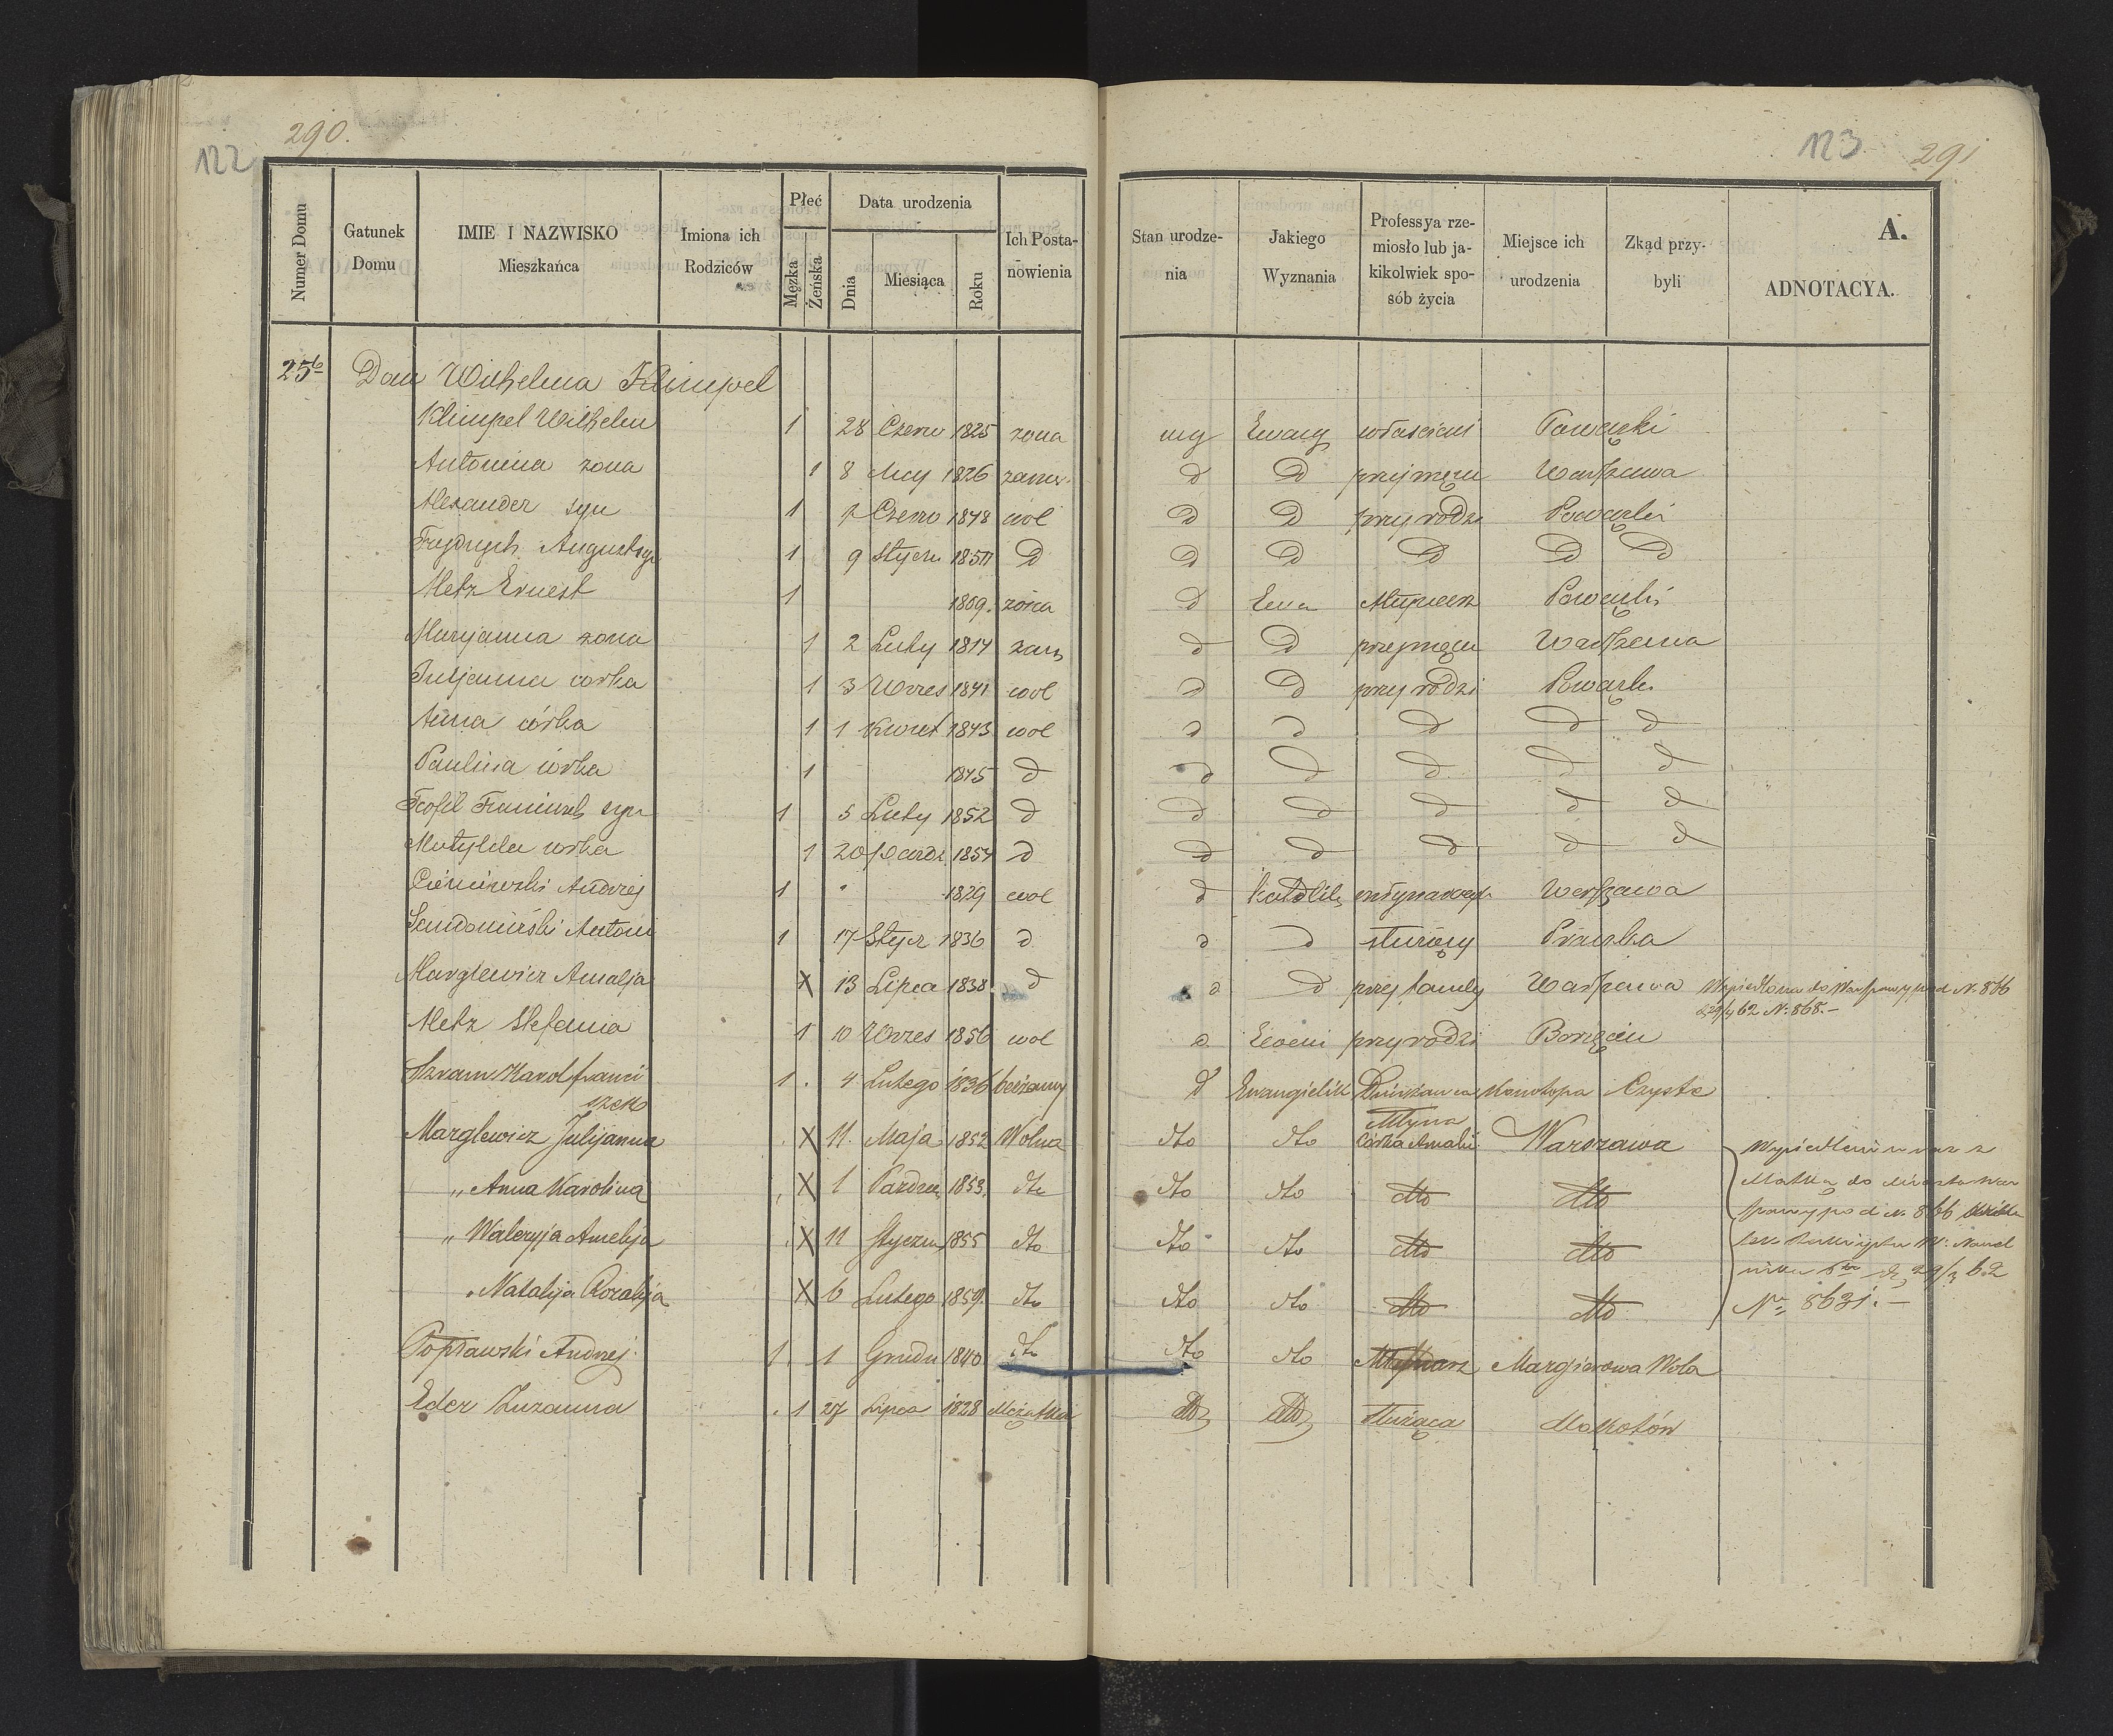 290.
122
123
291
Numer Domu
Gatunek Domu
IMIE I NAZWISKO Mieszkańca
Imiona ich Rodziców
Płeć
Męzka
Żeńska
Data urodzenia
Dnia
Miesiąca
Roku
Ich Postanowienia
Stan urodzenia
Jakiego Wyznania
Professya rzemiosło lub jakikolwiek sposób życia
Miejsce ich urodzenia
Zkąd przybyli
A.
ADNOTACYA.
25b Dom Wilhelma Klimpel
Klimpel Wilhelm 1 28 Czerw 1825 żona Ewang Powązki
Antonina zona 1 8 1826 zamę d d przy mężu Warszawa
Alexander syn 1 Czerw 1848 wol d d przy rodzi Powązki
Frydrych August syn 1 9 Stycz d d d d d d
Metz Ernest 1 żona d Ewa Powązki
Maryanna zona 1 2 Luty zam d d przy mężu Warszawa
Juljanna corka 1 3 Wrzes 1841 wol d d przy rodzi Powązki
Anna córka 1 1 Kwiet 1843 wol d d d d d
Paulina córka 1 1845 d d d d d d
Teofil Franciszek syn 1 5 Luty 1852 d d d d d d
Matylda corka 1 20 Pazdz 1854 d d d d d d
Andrzej 1 1829 wol d Katolik Warszawa
Sandomirski Antoni 1 17 Stycz 1836 d d d służący
Marglewicz Amalja X 13 Lipca 1838 d d d przy Warszawa pod N. 866
29/4 62 N. 868.-
Metz Stefania 1 10 Wrzes 1856 wol d przy rodzi
Szram Karol Franciszek 1. 4 Lutego 1836 bezżenny d Ewangielik Dzierżawca Młyna Konotopa Czyste
Marglewicz Julijanna X 11. Maja 1852 Wolna dto dto Córka Amalii Warszawa
„ Anna Karolina X 1 Pazdzier 1853. dto dto dto dto dto
„ Waleryja Amelija X 11 Styczn 1855 dto dto dto dto dto
„ Natalija Rozalija X 6 Lutego 1859. dto dto dto dto dto
Matką do Miasta
pod N. 866
29/3 62
No 8631.-
Popławski Andrzej 1. 1 Grudn 1840 dto dto dto Młynarz Margierowa Wola
Eder Zuzanna 1 27 Lipca 1828 Mężatka dto dto Służąca Mokotów